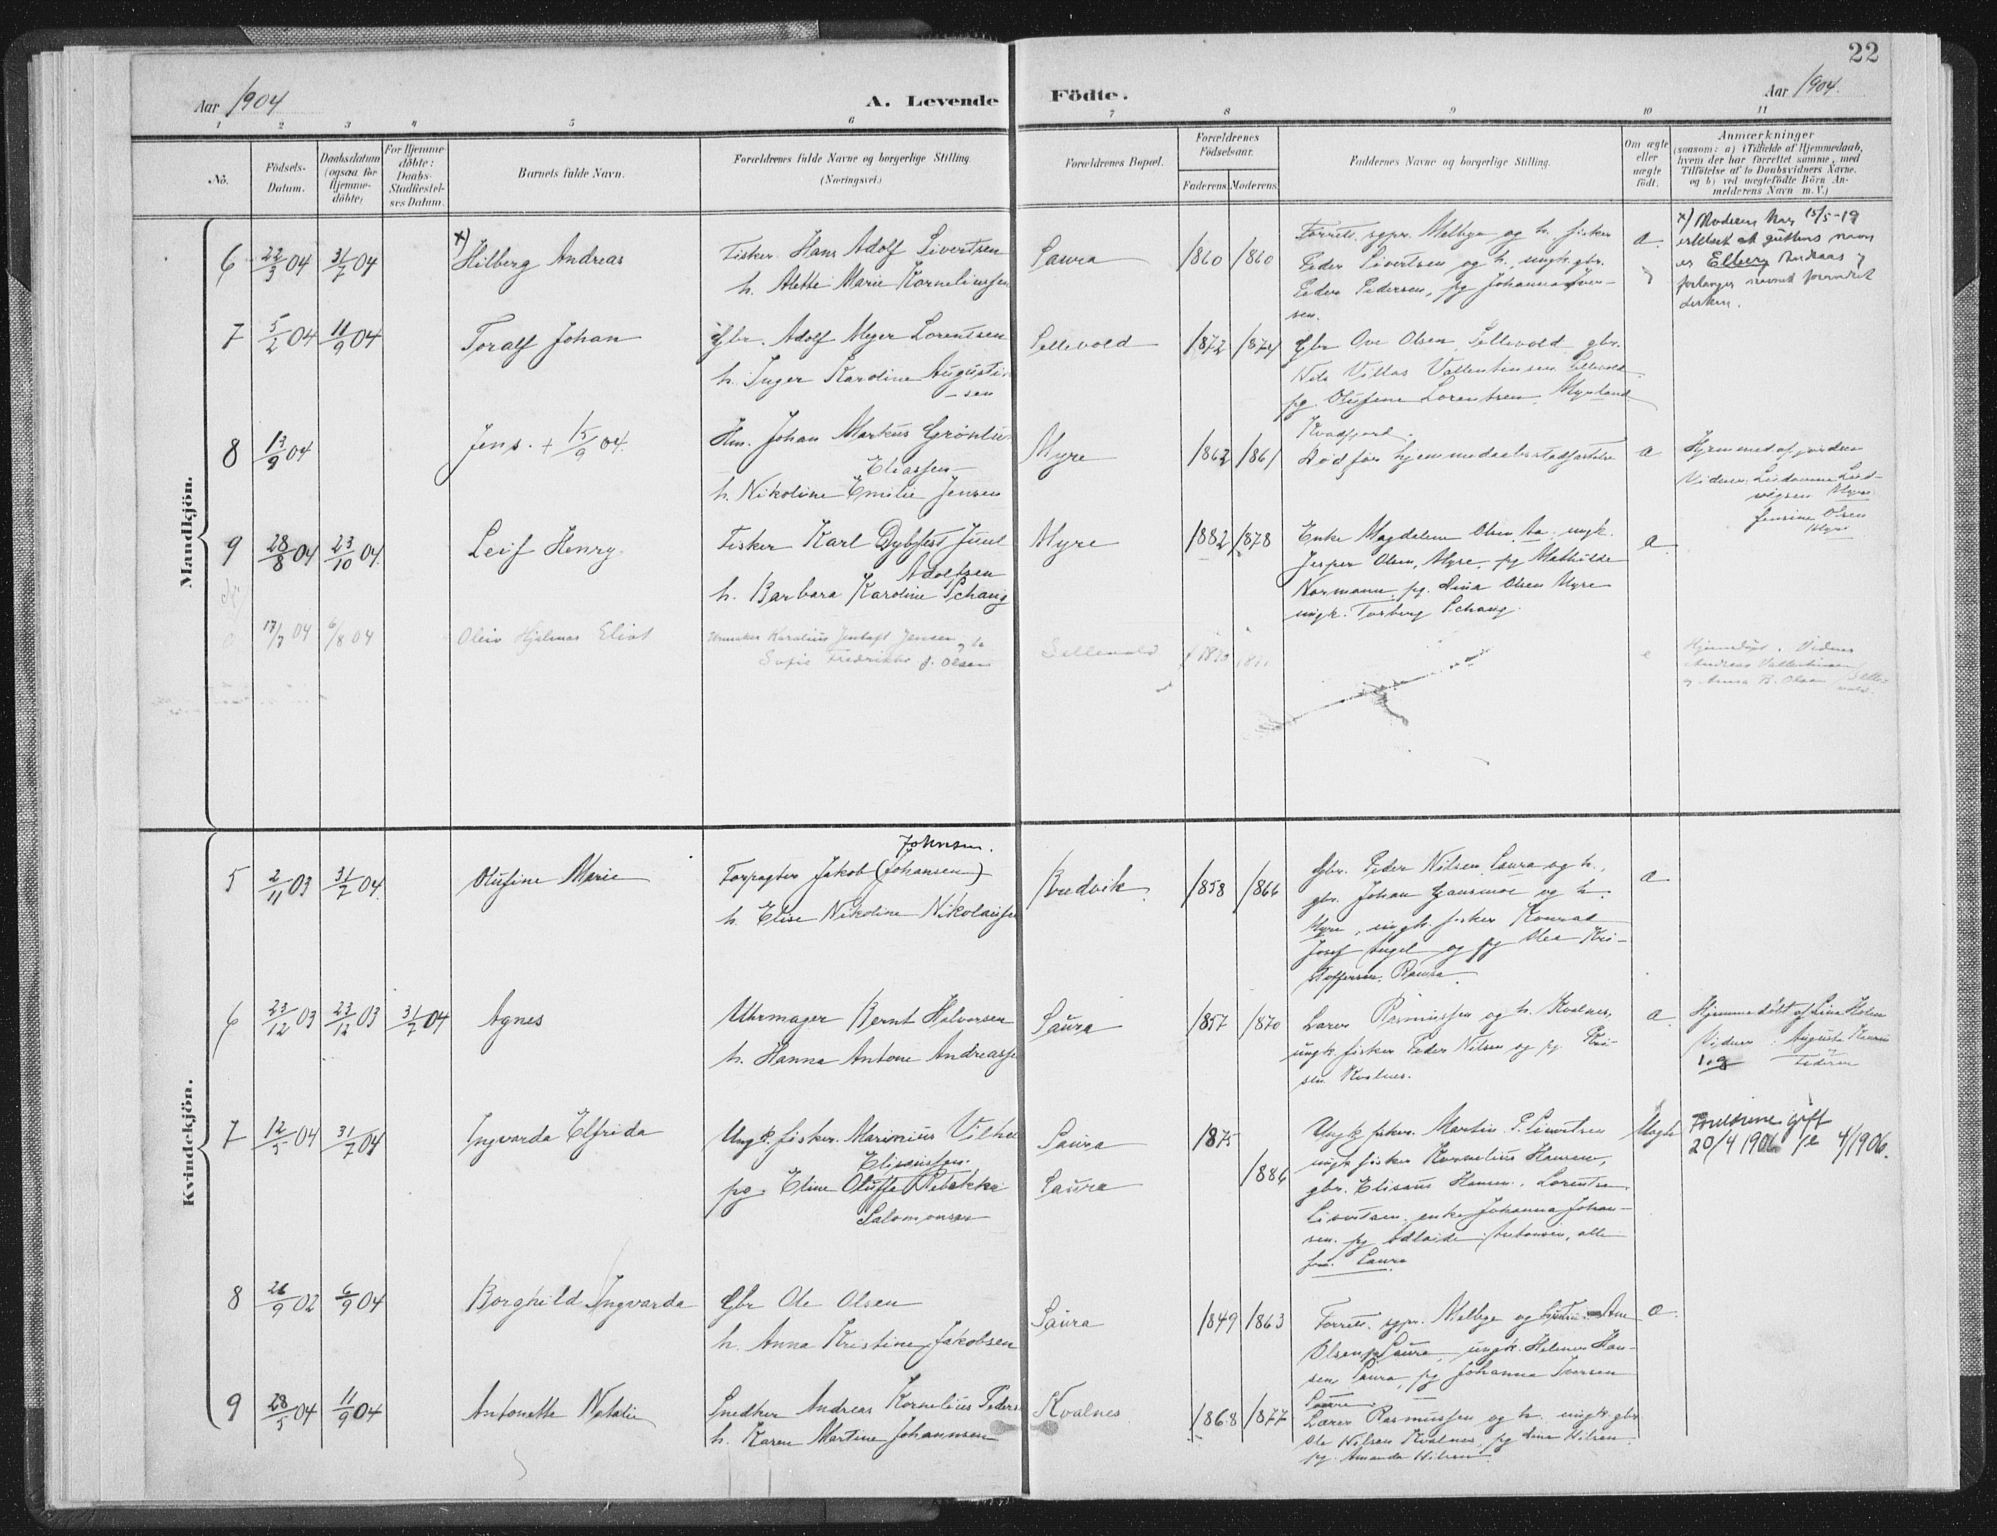 22
Aar 1904
A. Levende Födte.
Aar 1904.
1 2 3 4 5 6 7 8 9 10 11
No.
Födsels-
Datum.
Daabsdatum
(ogsaa for
Hjemme-
döbte)
For Hjemme-
döbte:
Daabs-
Stadfæstel-
ses Datum.
Barnets fulde Navn.
Forældrenes fulde Navne og borgerlige Stilling.
(Næringsvei)
Forældrenes Bopæl.
Forældrenes
Födselsaar.
Faderens Moderens
Faddernes Navne og borgerlige Stilling.
Om ægte
eller
uægte
födt.
Anmærkninger
(saasom: a) i Tilfælde af Hjemmedaab,
hvem der har forrettet samme, med
Tilföielse af to Daabsvidners Navne.
og b) ved uægtefödte Börn An-
melderens Navn m. V.)
Mandkjön.
6 22/3 04 31/7 04 x) Hilberg Andreas
Fisker Hans Adolf Sivertsen
h. Alette Marie Korneliussen
Saura 1860 1860
Forrett. sgpr. Melbye og h. fisker
Peder Sivertsen og h., ungk. gbr.
Peder Pedersen, pg Johanna Iver-
sen.
a
x) Moderen har 15/5-19
erklært at guttens navn
er Elberg Andreas og
forlanger navnet forandret
7 5/2 04 11/9 04 Toralf Johan
Gbr. Adolf Meyer Lorentsen
h. Inger Karoline Augustin
-sen
Sellevold 1872 1874
Gbr Ove Olsen, Sellevold gbr.
Nils Villas Vallentinsen Sellevold
pg. Olufine Lorentsen, Myrland
Kvadfjord.
8 13/9 04 Jens. + 15/9 04.
Hm. Johan Markus Grönlu
Eliassen
h. Nikoline Emilie Jensen
Myre 1862 1861
Död för hjemmedaabsstadfæstelse
a
Hjemmed. af jordm
Vidner: Lud-
vigsen Myre
Jensine Olsen
Myre
9 28/8 04 23/10 04. Leif Henry.
Fisker Karl Dybfest Juul
Adolfsen
h. Barbara Karoline Schang
Myre 1882 1878
Enke Magdelene Olsen Aa. ungk.
Jesper Olsen, Myre, pg Mathilde
Normann, pg. Dina Olsen Myre
ungk. Torberg Schang.
a
17/7 04 6/8 04 Oleiv Hjalmar Eliot
Karelius Jentoft Jensen og h
Sofie Fredrikke f. Olsen
Sellevold 1870
Hjemmedöbt. Vidner
Andreas Vallentinsen
og Anna B. Olsen Selle-
vold.
Kvindekjön.
5 2/11 03 31/7 04. Olufine Marie
Johnsen.
Forpagter Jakob (Johansen)
h. Elise Nikoline Nikolaisen
Bredvik 1858 1866
Gbr. Peder Nilsen Saura og h.,
gbr. Johan Hansmoe og h.
Myre, ungk. fisker Konrad
Josef Angel og pg Alea Kri-
stoffersen, Ramsa.
a
6 23/12 03 23/12 03 31/7 04 Agnes
Uhrmager Bernt Halvorsen
h. Hanna Antone Andreasse
Saura 1857 1870
Lærer Rasmussen og h. Kvalnes,
ungk. fisker Peder Nilsen og pg.
sen Kvalnes.
a
Hjemmedöbt af Lina Holm
Vidner: Augusta Hansen
og Faderen
7 12/5 04 31/7 04 Ingvarda Elfrida
Ungk. fisker Marinius Vilhe
Elisæussen.
pg. Eline Olufta Rebekka
Salomonsen
Saura 1875
Saura 1886
Ungk. fisker Martin P. Sivertsen
ungk. fisker Kornelius Hansen,
gbr. Elisæus Hansen, Lorents
Sivertsen, enke Johanna Johan-
sen. pg Adlaide Antonsen, alle
fra Saura
Uægte
Foreldrene gift
20/4 1906 4/1906.
8 26/9 02 6/9 04 Borghild Ingvarda
Gbr Ole Olsen
h. Anna Kristine Jakobsen
Saura 1849 1863
Forrett. sgpr. Melbye og hustru Ane
Olsen pg Saura, ungk. Helmer Han-
sen, Saura, pg Johanna Iversen
Saura
a
9 28/5 04 11/9 04 Antonette Natalie
Snedker Andreas Kornelius Peders
h. Karen Martine Johannsen
Kvalnes 1868 1877
Lærer Rasmussen og h. ungk. gbr
Ole Nilsen Kvalnes, pg Lina Nilsen
pg. Amanda Nilsen